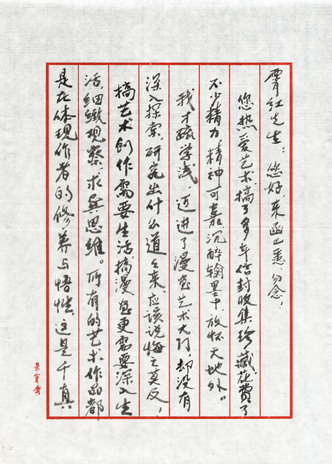 覃红先生：您好，来函已悉，勿念，
您热爱艺术，搞了多年信封收集珍藏，花费了
不少精力，精神可嘉，沉醉翰墨中，放怀天地外。
我才疏学浅，迈进了漫画艺术大门，却没有
深入探索，研究出什么道道来，应该说悔之莫及，
搞艺术创作需要生活，搞漫画更需要深入生
活，细緻观察，求异思维。所有的艺术作品都
是在体现作者的修养与悟性，这是千真
荣宝斋